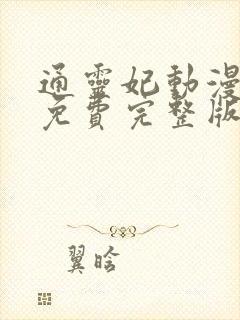 通靈妃動漫
免費完整版
翼晗